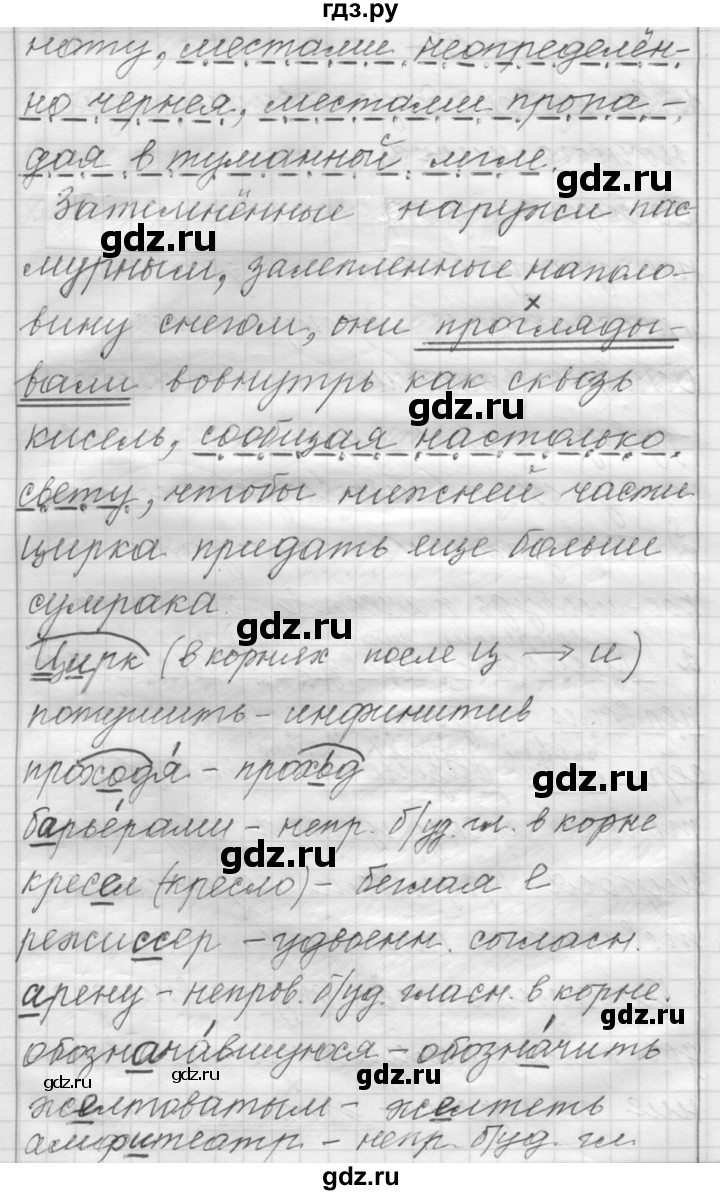 гдз.ру
нату, местами неопределён-
но чернея, местами пропа-
дая в туманной мгле.
Затемнённые наружи пас
gdz.ru
gdz.ru
мурным, залепленные наполо-
вину снегом, они прогляды-
вали вовнутрь как сквозь
gdz.ru
кисель, сообщая настолько
свету, чтобы нижней части
цирка придать еще больше
сумрака.
gdz.ru
Цирк (в корнях после ц → и)
потушить - инфинитив
проходя́ - прохо́д
gdz.ru
барье́рами - непр. б/уд. гл. в корне
gdz.ru
кресел (кресло) - беглая е
режиссер - удвоенн. согласн.
арену - непров. б/уд. гласн. в корне.
gdz.ru
обознача́вшуюся - обозна́чить
gdz.ru
gdz.ru
gdz.ru
желтоватым - желтеть
амфитеатр. - непр. б/уд. гл.
gdz.ru